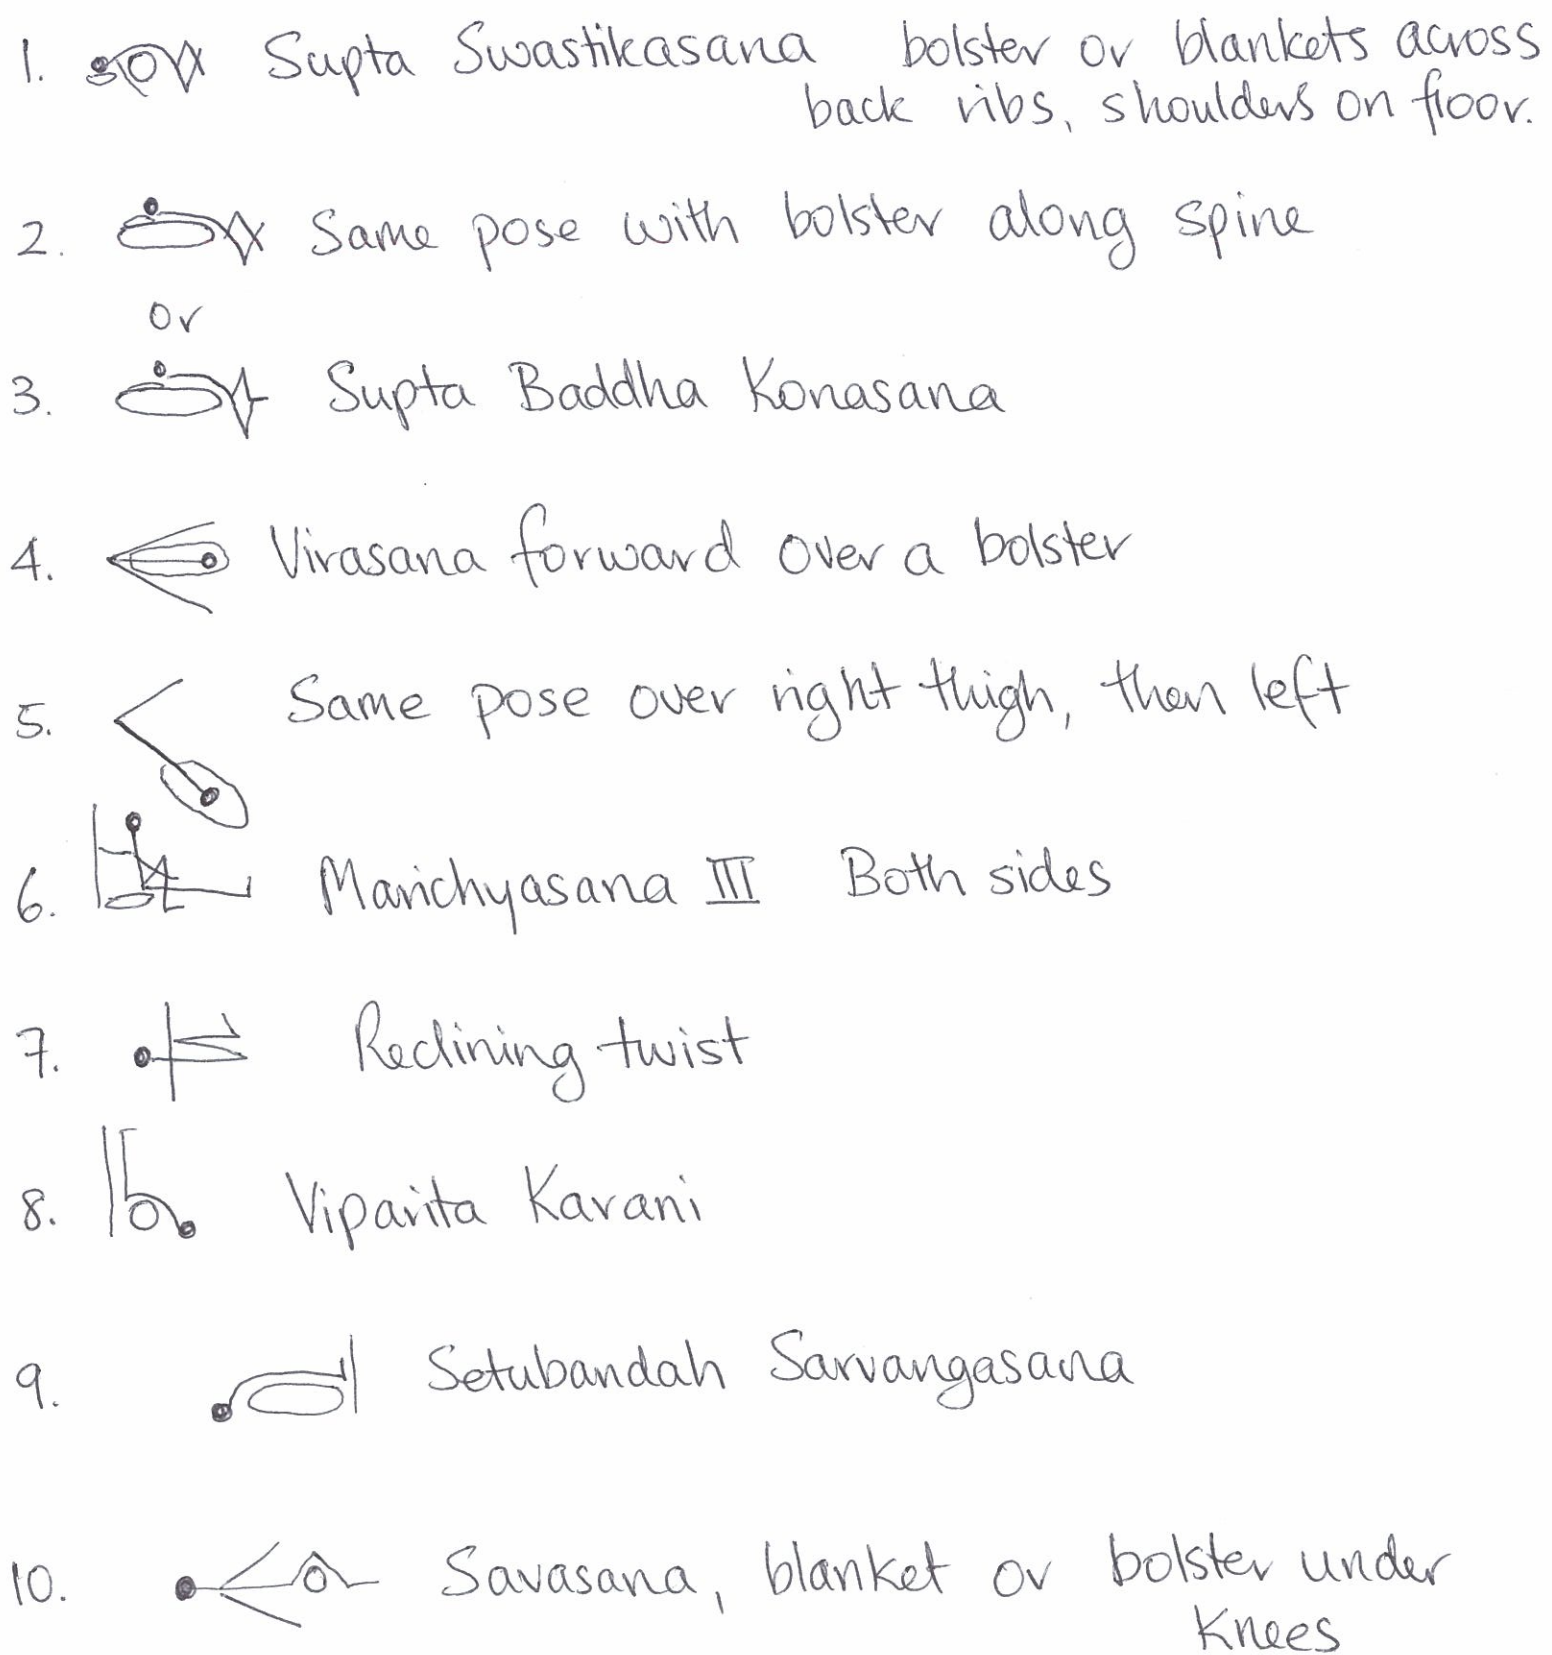 1. Supta Swastikasana bolster or blankets across
back ribs, shoulders on floor.
2. Same pose with bolster along spine
or
3. Supta Baddha Konasana
4. Virasana forward over a bolster
5. Same pose over right thigh, then left
6. Marichyasana III Both sides
7. Reclining twist
8. Viparita Karani
9. Setubandah Sarvangasana
10. Savasana, blanket or bolster under
knees